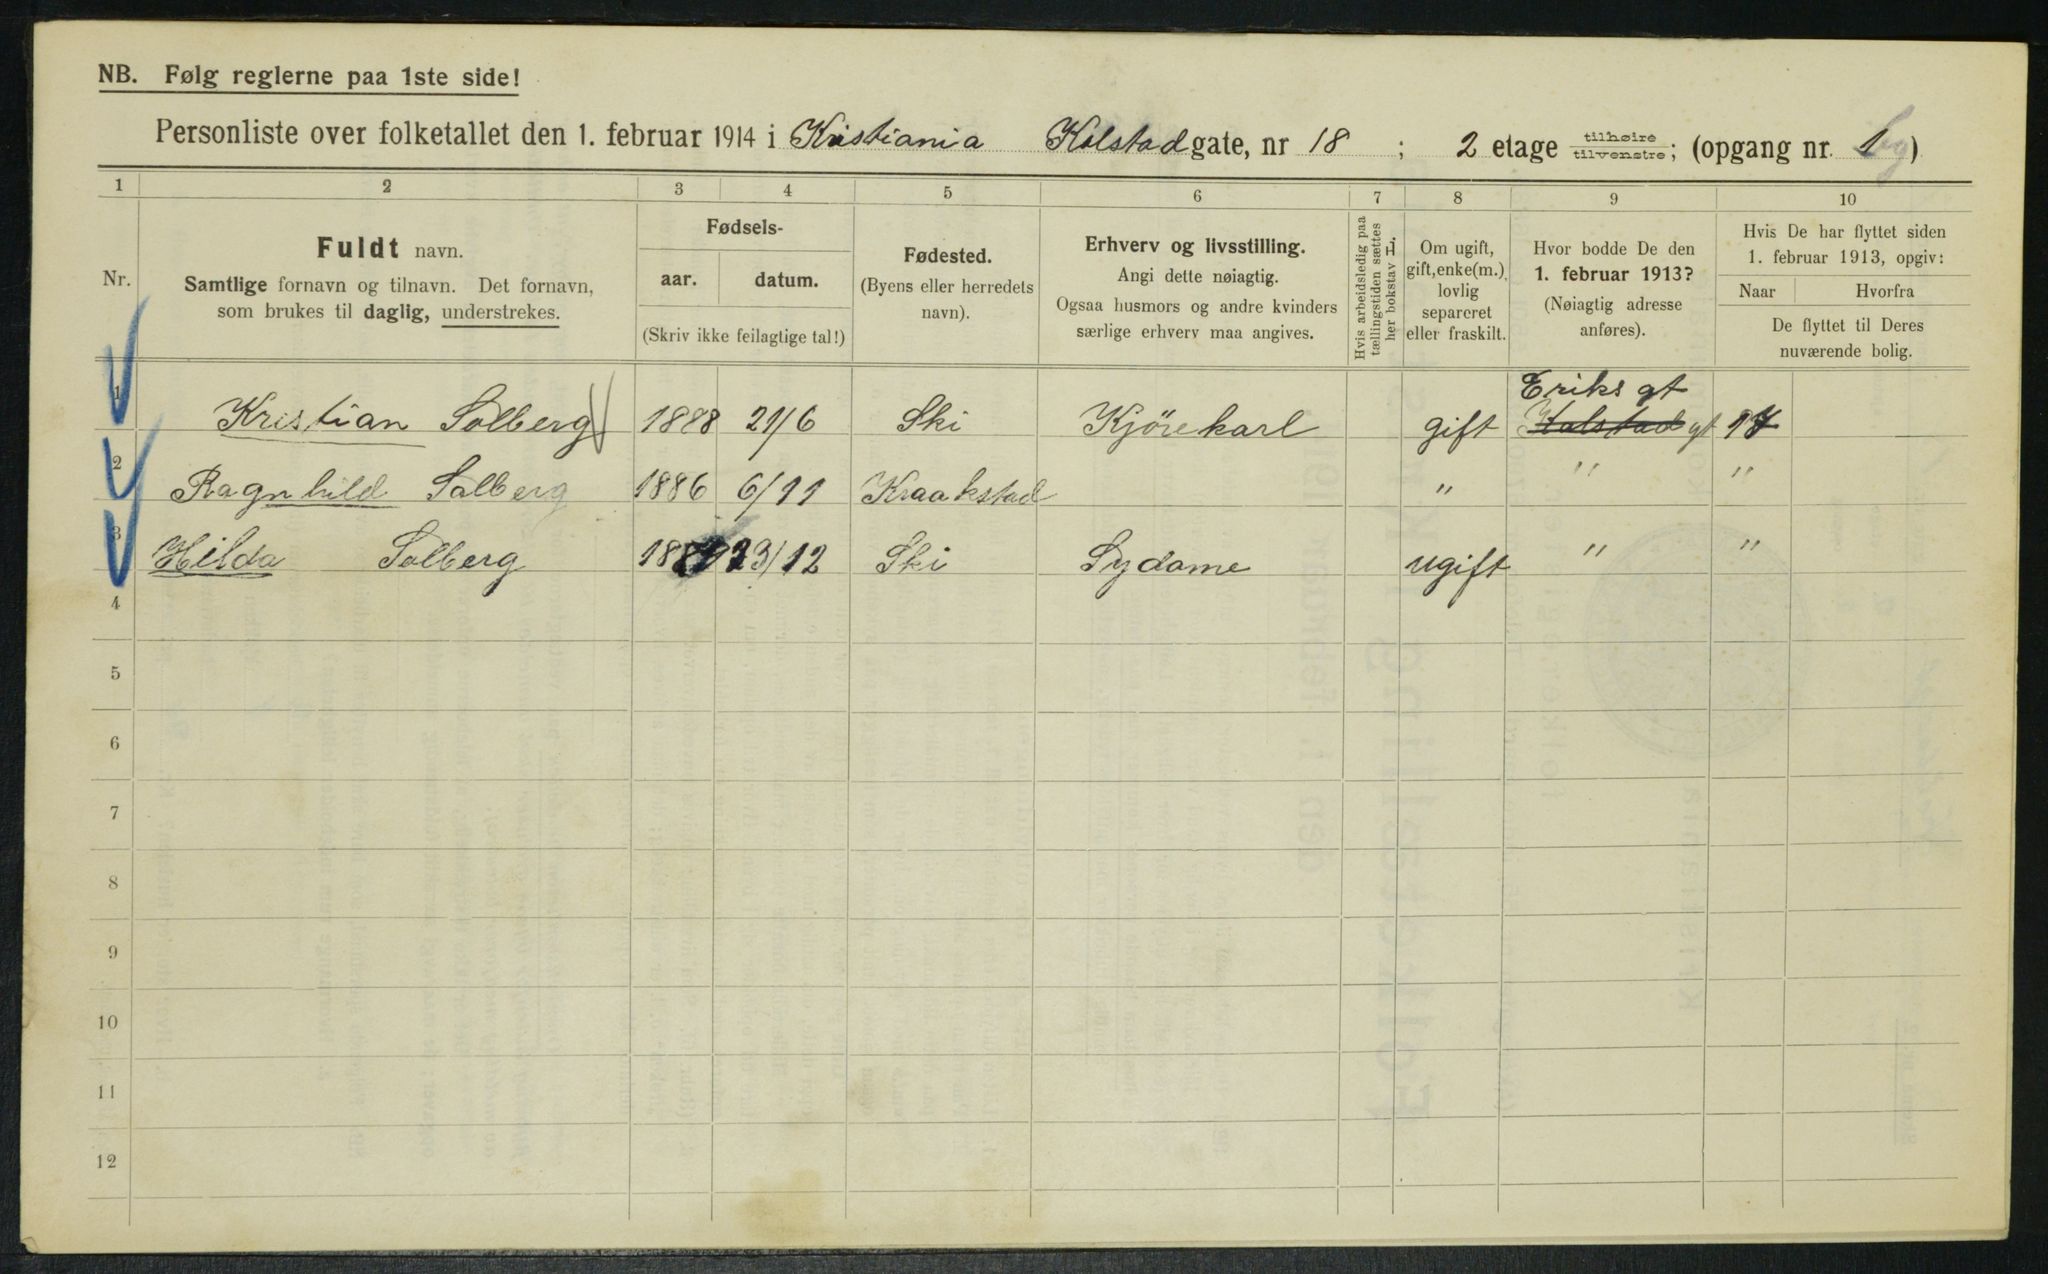 NB. Følg reglerne paa 1ste side!
Personliste over folketallet den 1. februar 1914 i Kristiania Kolstadgate, nr 18 ; 2 etage tilhøire tilvenstre; (opgang nr. 1)
1 2 3 4 5 6 7 8 9 10
Nr.
Fuldt navn.
Samtlige fornavn og tilnavn. Det fornavn,
som brukes til daglig, understrekes.
Fødsels-
aar. datum.
(Skriv ikke feilagtige tal!)
Fødested.
(Byens eller herredets
navn).
Erhverv og livsstilling.
Angi dette nøiagtig.
Ogsaa husmors og andre kvinders
særlige erhverv maa angives.
Hvis arbeidsledig paa
tællingstiden sættes
her bokstav L.
Om ugift,
gift, enke(m.),
lovlig
separeret
eller fraskilt.
Hvor bodde De den
1. februar 1913?
(Nøiagtig adresse
anføres).
Hvis De har flyttet siden
1. februar 1913, opgiv:
Naar Hvorfra
De flyttet til Deres
nuværende bolig.
Eriks gt
1 Kristian Solberg 1888 21/6 Ski Kjörekarl gift Kolstad gt 17
2 Ragnhild Solberg 1886 6/11 Kraakstad " " "
3 Hilda Solberg 23/12 Ski Sydame ugift " "
4
5
6
7
8
9
10
11
12